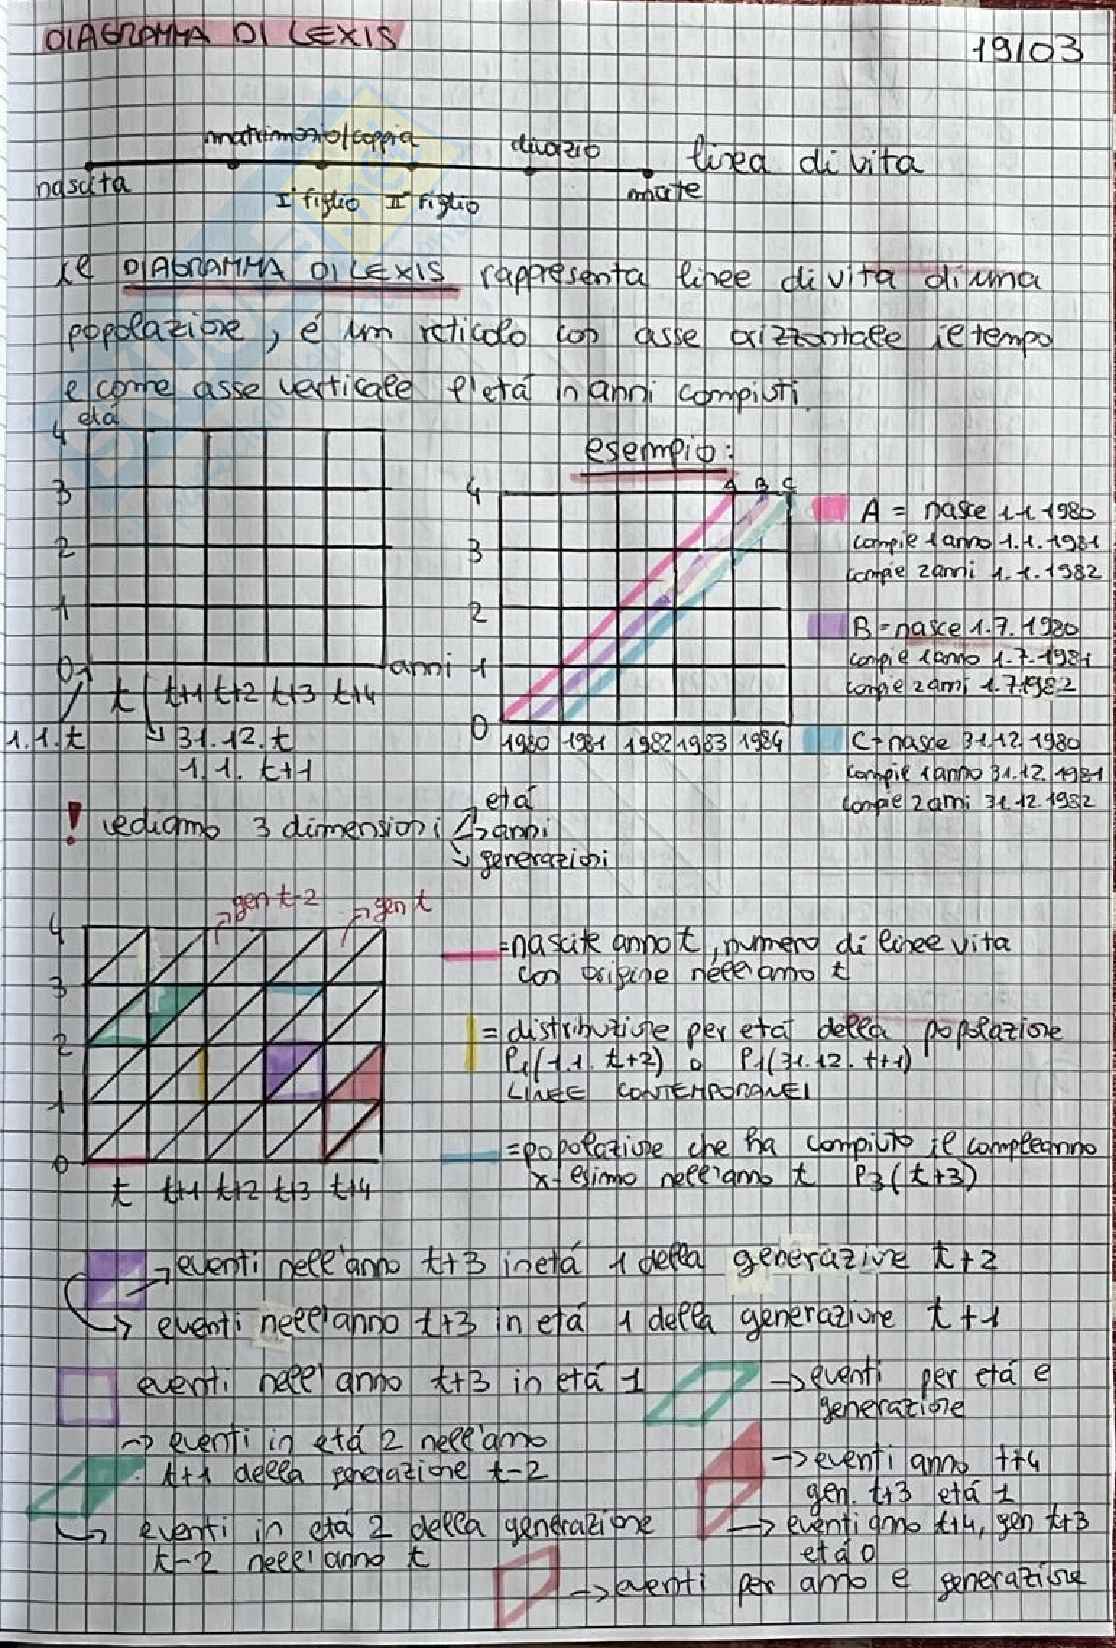 DIAGRAMMA DI LEXIS
19/03
matrimonio/coppia
divorzio
linea di vita
nascita
I° figlio II° figlio
morte
Il DIAGRAMMA DI LEXIS rappresenta linee di vita di una
popolazione, é un reticolo con asse orizzontale il tempo
e come asse verticale l'etá in anni compiuti.
etá
4
3
2
1
0
anni
t t+1 t+2 t+3 t+4
1.1.t
31.12.t
1.1. t+1
esempio:
A B C
4
3
2
1
0
1980 1981 1982 1983 1984
A = nasce 1.1.1980
compie 1 anno 1.1.1981
compie 2 anni 1.1.1982
B = nasce 1.7.1980
compie 1 anno 1.7.1981
compie 2 anni 1.7.1982
C = nasce 31.12.1980
compie 1 anno 31.12.1981
compie 2 anni 31.12.1982
! vediamo 3 dimensioni
etá
anni
generazioni
gen t-2
gen t
4
3
2
1
0
t t+1 t+2 t+3 t+4
= nascite anno t, numero di linee vita
con origine nell'anno t
= distribuzione per etá della popolazione
P1(1.1. t+2) o P1(31.12. t+1)
LINEE CONTEMPORANEI
= popolazione che ha compiuto il compleanno
x-esimo nell'anno t P3(t+3)
→ eventi nell'anno t+3 in etá 1 della generazione t+2
→ eventi nell'anno t+3 in etá 1 della generazione t+1
eventi nell'anno t+3 in etá 1
→ eventi per etá e
generazione
→ eventi in etá 2 nell'anno
t+1 della generazione t-2
→ eventi anno t+4
gen. t+3 etá 1
→ eventi in etá 2 della generazione
t-2 nell'anno t
→ eventi anno t+4, gen t+3
etá 0
→ eventi per anno e generazione